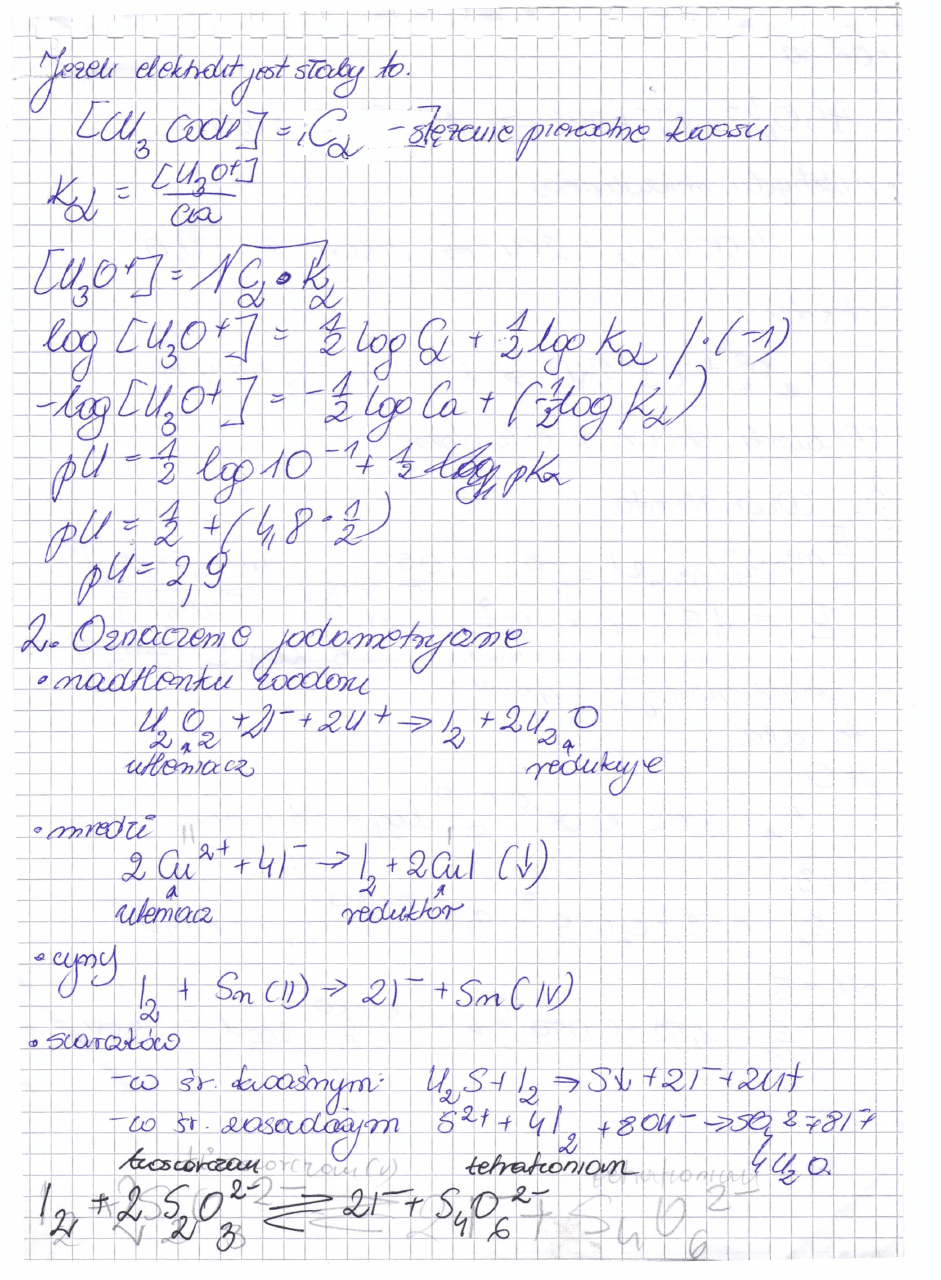 Jeżeli elektrolit jest słaby to.
[CH₃COOH] = Cₐ - stężenie pierwotne kwasu
Kₐ = [H₃O⁺] / Ca
[H₃O⁺] = √Cₐ • Kₐ
log [H₃O⁺] = ½ log Cₐ + ½ lgo Kₐ /·(-1)
-log [H₃O⁺] = -½ lgo Ca + (-½ log Kₐ)
pH = ½ log 10⁻¹ + ½ pKₐ
pH = ½ + (4,8 · ½)
pH = 2,9
2. Oznaczenie jodometryczne
• nadtlenku wodoru
H₂O₂ + 2I⁻ + 2H⁺ → I₂ + 2H₂O
utleniacz redukuje
• miedzi
2Cu²⁺ + 4I⁻ → I₂ + 2CuI (↓)
utleniacz reduktor
• cyny
I₂ + Sn(II) → 2I⁻ + Sn(IV)
• siarczków
- w śr. kwaśnym: H₂S + I₂ → S↓ + 2I⁻ + 2H⁺
- w śr. zasadowym S²⁺ + 4I₂ + 8OH⁻ → SO₄²⁻ + 8I⁻ + 4H₂O.
tiosiarczan tetrationian
I₂ + 2S₂O₃²⁻ ⇌ 2I⁻ + S₄O₆²⁻